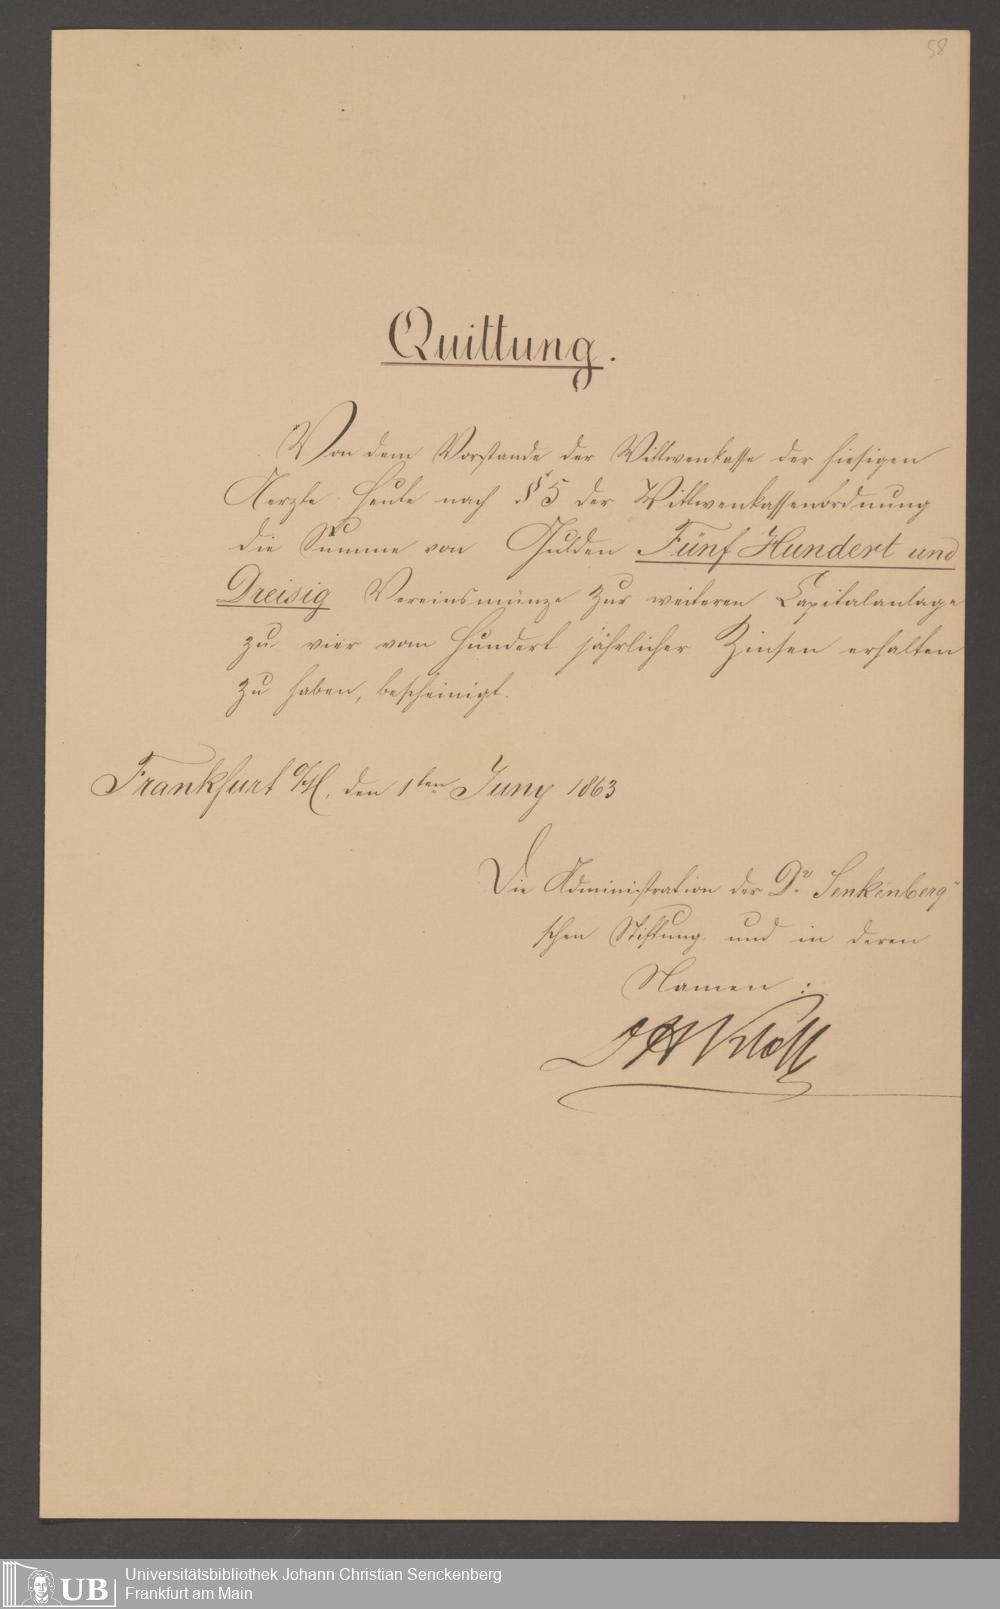 58
Quittung.
Von dem Vorstande der Wittwenkasse der hiesigen
Aerzte heute nach § 5 der Wittwenkassenordnung
die Summe von Gulden Fünf Hundert und
Dreisig Vereinsmünze zur weiteren Capitalanlage
zu vier vom Hundert jährlicher Zinsen erhalten
zu haben, bescheinigt.
Frankfurt a/M, den 1ten Juny 1863
Die Administration der Dr Senkenberg"
schen Stiftung und in deren
Namen :
UB
Universitätsbibliothek Johann Christian Senckenberg
Frankfurt am Main